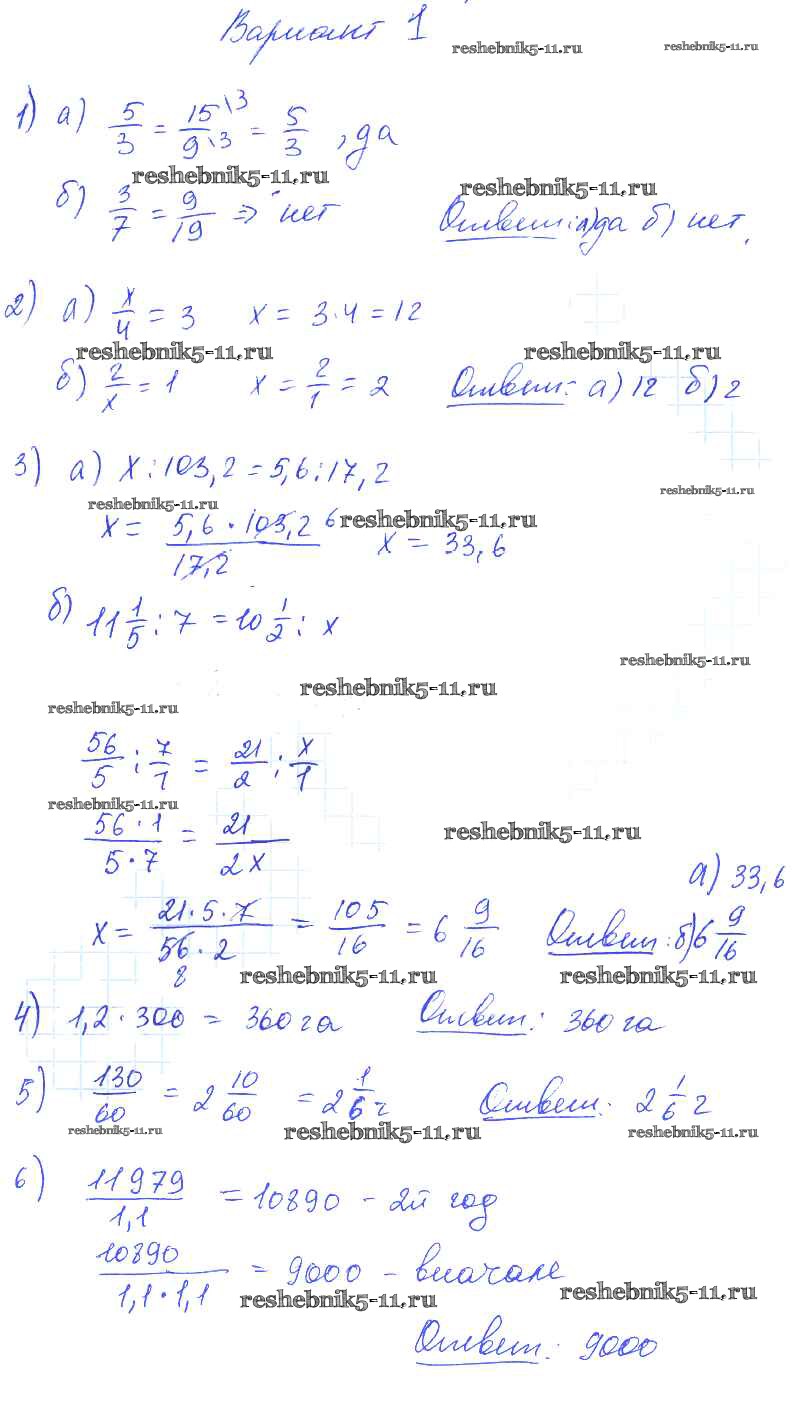 Вариант 1
reshebnik5-11.ru reshebnik5-11.ru
1) а) 5/3 = 15\3/9\3 = 5/3, да
reshebnik5-11.ru reshebnik5-11.ru
б) 3/7 = 9/19 => нет Ответ: а) да б) нет.
2) а) x/4 = 3 x = 3·4 = 12
reshebnik5-11.ru reshebnik5-11.ru
б) 2/x = 1 x = 2/1 = 2 Ответ: а) 12 б) 2
3) а) x : 103,2 = 5,6 : 17,2
reshebnik5-11.ru reshebnik5-11.ru
x = 5,6 · 103,2 6/17,2 x = 33,6
reshebnik5-11.ru
б) 11 1/5 : 7 = 10 1/2 : x
reshebnik5-11.ru
reshebnik5-11.ru
reshebnik5-11.ru
56/5 : 7/1 = 21/2 : x/1
reshebnik5-11.ru
56·1/5·7 = 21/2x
reshebnik5-11.ru
а) 33,6
x = 21·5·7/56·2 8 = 105/16 = 6 9/16 Ответ: б) 6 9/16
reshebnik5-11.ru reshebnik5-11.ru
4) 1,2 · 300 = 360 га Ответ: 360 га
5) 130/60 = 2 10/60 = 2 1/6 г Ответ: 2 1/6 г
reshebnik5-11.ru reshebnik5-11.ru reshebnik5-11.ru
6) 11979/1,1 = 10890 - 2й год
10890/1,1·1,1 = 9000 - вначале
reshebnik5-11.ru reshebnik5-11.ru
Ответ: 9000